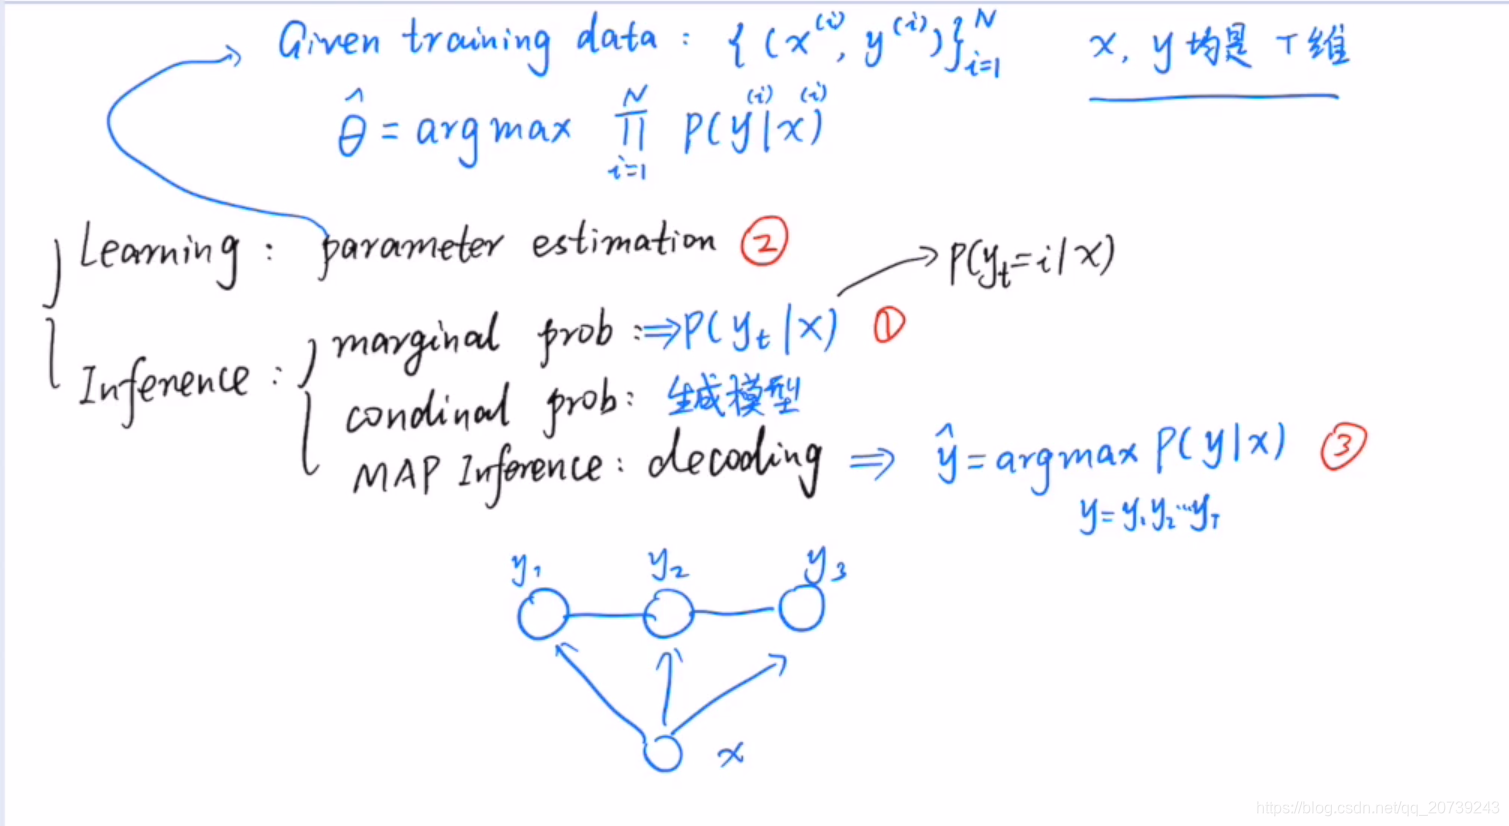 Given training data : {(x^(i), y^(i))}_{i=1}^N x, y 均是 T 维
θ̂ = argmax ∏_{i=1}^N P(y^(i)|x^(i))
Learning : parameter estimation ②
P(y_t=i|x)
Inference :
marginal prob : ⇒ P(y_t|x) ①
condinal prob : 生成模型
MAP Inference : decoding ⇒ ŷ = argmax P(y|x) ③
y = y₁y₂…y_T
y₁ y₂ y₃
x
https://blog.csdn.net/qq_20739243